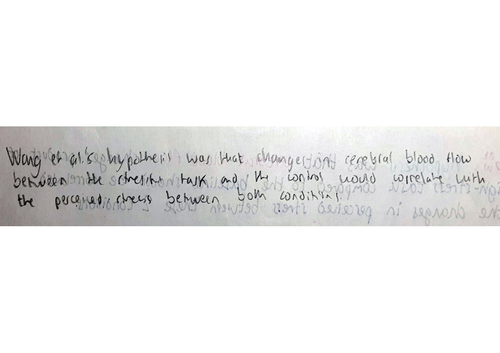 Wang et al's hypothesis was that changes in cerebral blood flow
between the stressing task and the control would correlate with
the perceived stress between both conditions.